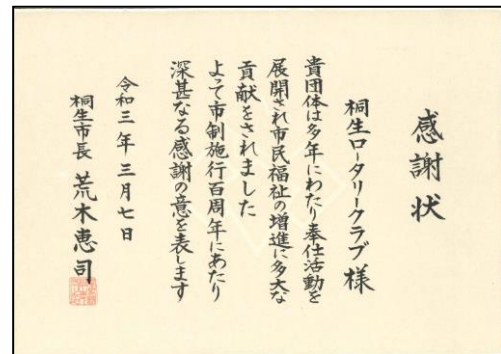 感謝状
桐生ロータリークラブ様
貴団体は多年にわたり奉仕活動を
展開され市民福祉の増進に多大な
貢献をされました
よって市制施行百周年にあたり
深甚なる感謝の意を表します
令和三年三月七日
桐生市長 荒木恵司